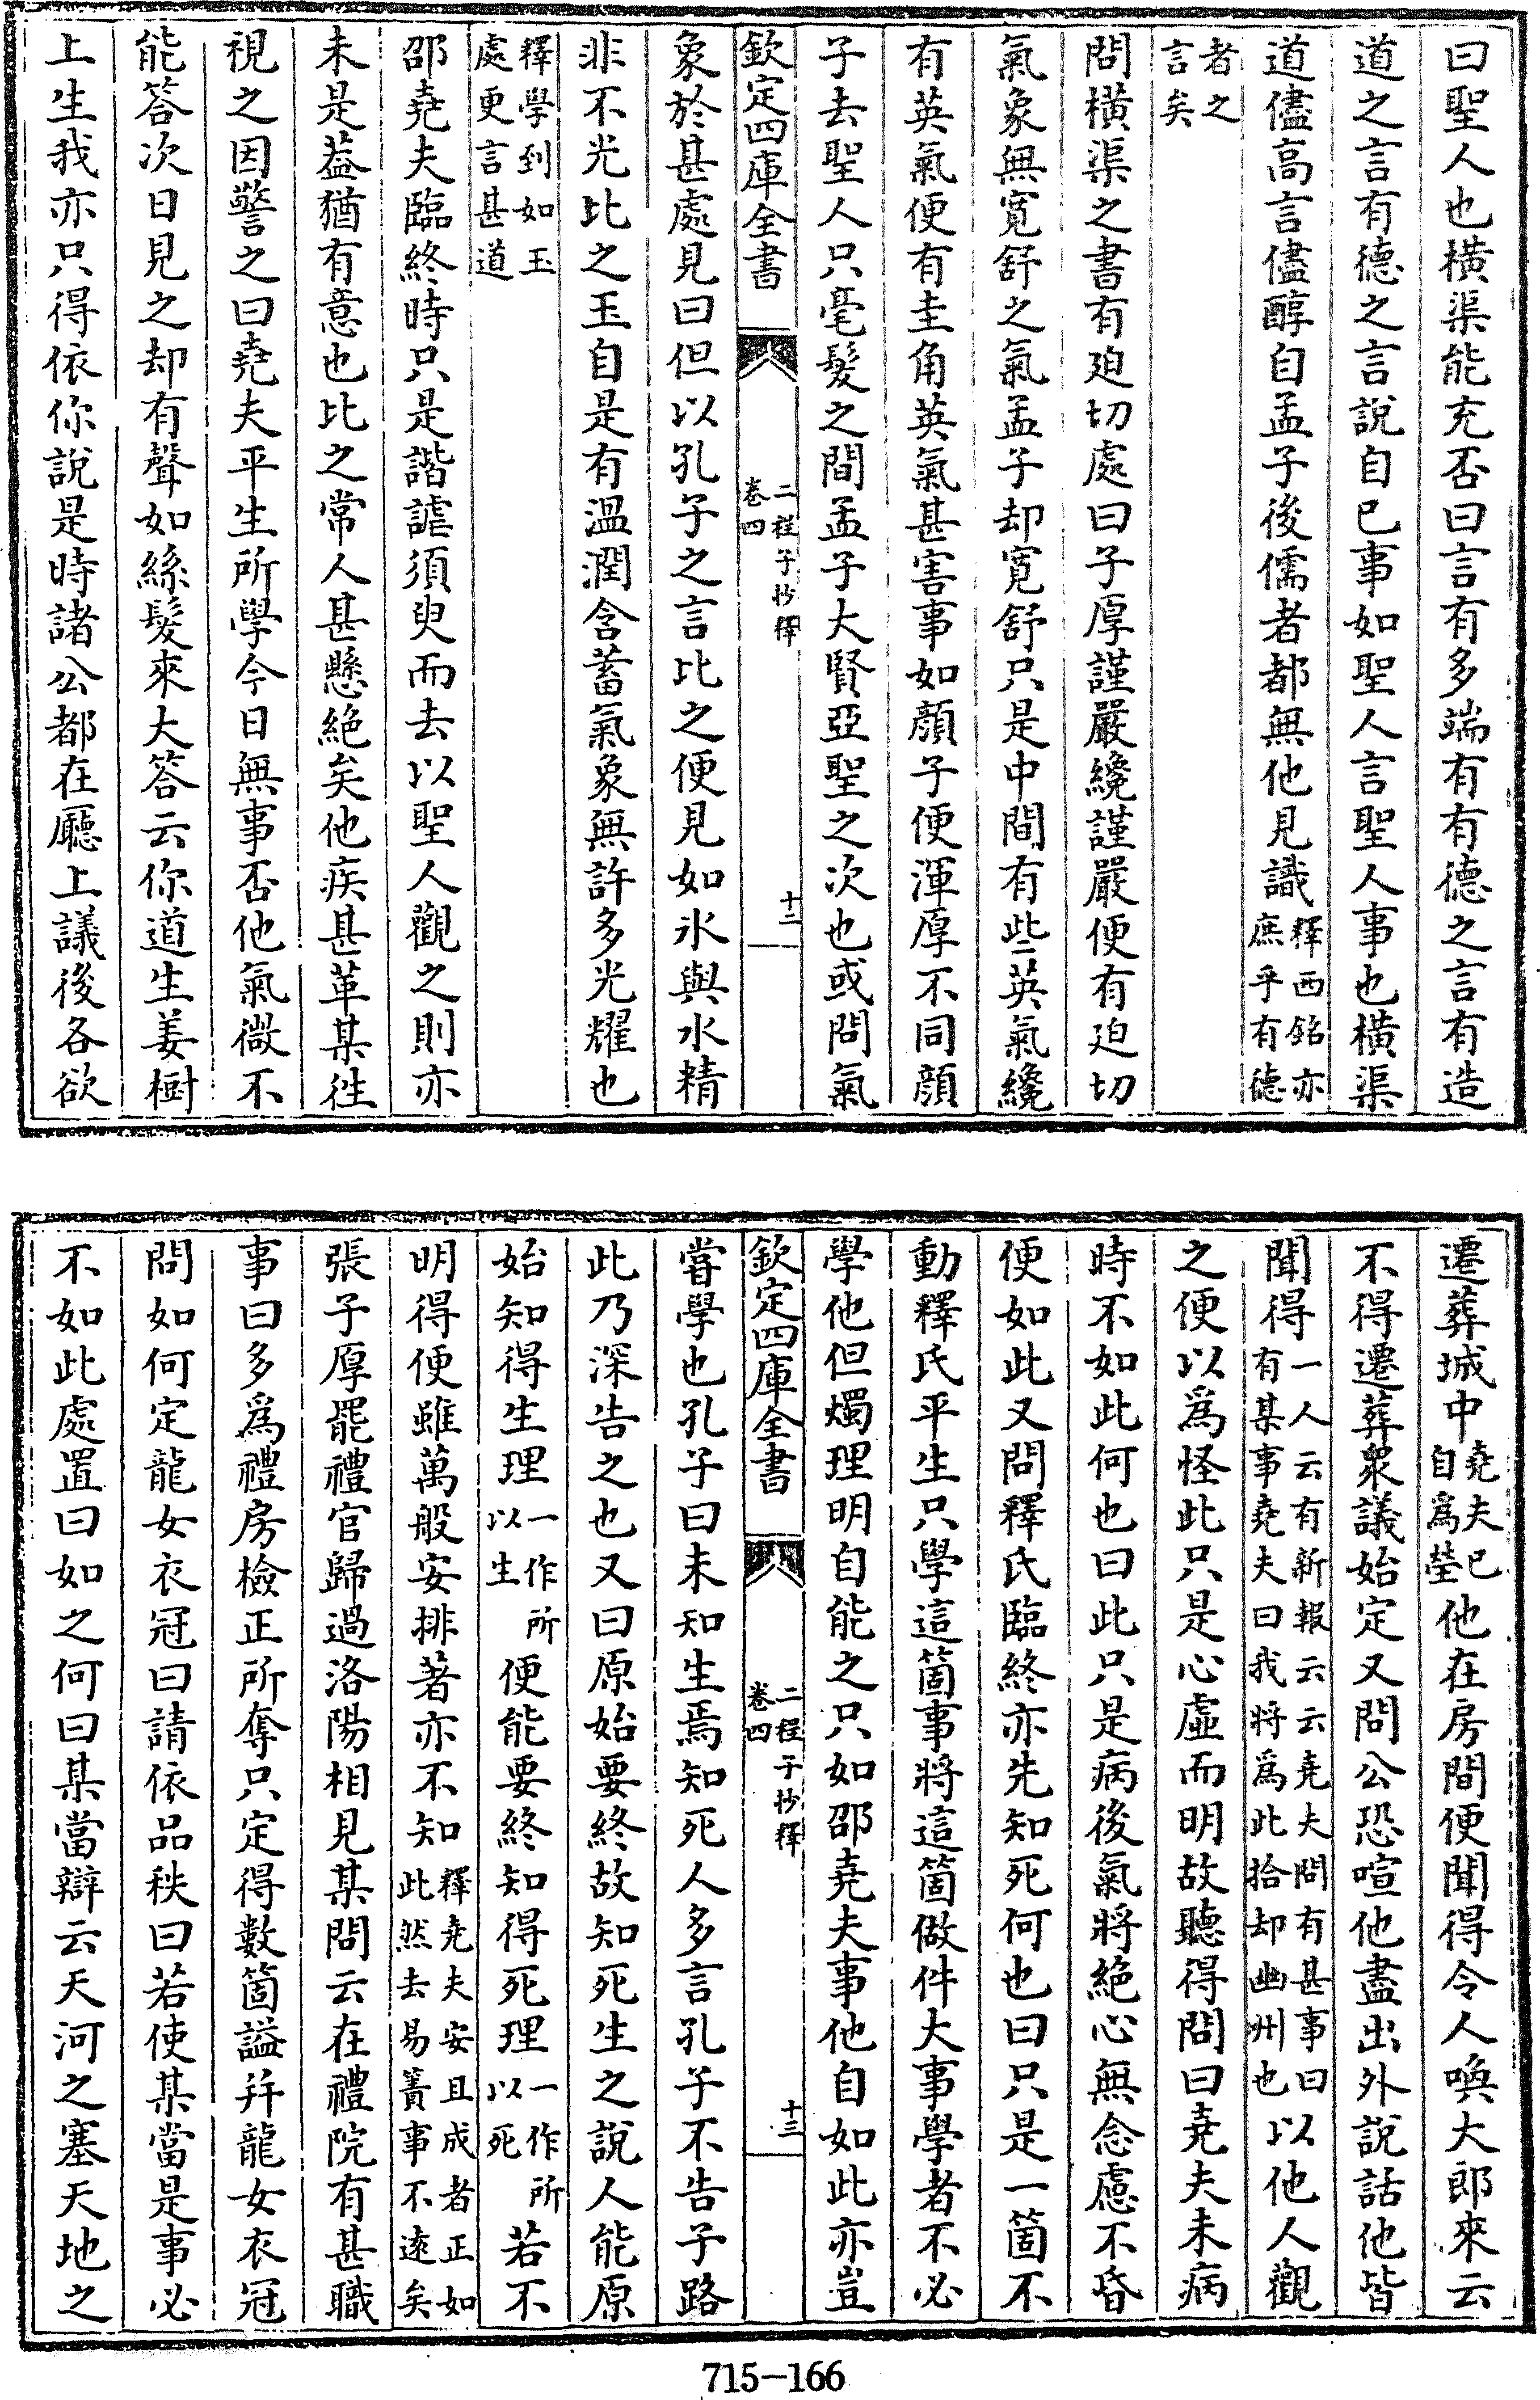 曰聖人也橫渠能充否曰言有多端有有德之言有造
道之言有德之言說自已事如聖人言聖人事也橫渠
道儘高言儘醇自孟子後儒者都無他見識釋西銘亦庶乎有德
者之言矣
問橫渠之書有廹切處曰子厚謹嚴纔謹嚴便有廹切
氣象無寛舒之氣孟子却寛舒只是中間有些英氣纔
有英氣便有圭角英氣甚害事如顔子便渾厚不同顔
子去聖人只毫髮之間孟子大賢亞聖之次也或問氣
欽定四庫全書 二程子抄釋卷四 十二
象於甚處見曰但以孔子之言比之便見如氷與水精
非不光比之玉自是有溫潤含蓄氣象無許多光耀也
釋學到如玉處更言甚道
邵堯夫臨終時只是諧謔須臾而去以聖人觀之則亦
未是葢猶有意也比之常人甚懸絶矣他疾甚革某徃
視之因警之曰堯夫平生所學今日無事否他氣微不
能答次日見之却有聲如絲髮來大答云你道生姜樹
上生我亦只得依你說是時諸公都在廳上議後各欲
遷葬城中堯夫已自爲塋他在房間便聞得令人喚大郎來云
不得遷葬衆議始定又問公恐喧他盡出外說話他皆
聞得一人云有新報云云堯夫問有甚事曰有某事堯夫曰我將爲此拾却幽州也以他人觀
之便以爲怪此只是心虛而明故聽得問曰堯夫未病
時不如此何也曰此只是病後氣將絶心無念慮不昏
便如此又問釋氏臨終亦先知死何也曰只是一箇不
動釋氏平生只學這箇事將這箇做件大事學者不必
學他但燭理明自能之只如邵堯夫事他自如此亦豈
欽定四庫全書 二程子抄釋卷四 十三
嘗學也孔子曰未知生焉知死人多言孔子不告子路
此乃深告之也又曰原始要終故知死生之說人能原
始知得生理一作所以生便能要終知得死理一作所以死若不
明得便雖萬般安排著亦不知釋堯夫安且成者正如此然去易簀事不逺矣
張子厚罷禮官歸過洛陽相見某問云在禮院有甚職
事曰多爲禮房檢正所奪只定得數箇謚并龍女衣冠
問如何定龍女衣冠曰請依品秩曰若使某當是事必
不如此處置曰如之何曰某當辯云天河之塞天地之
715-166